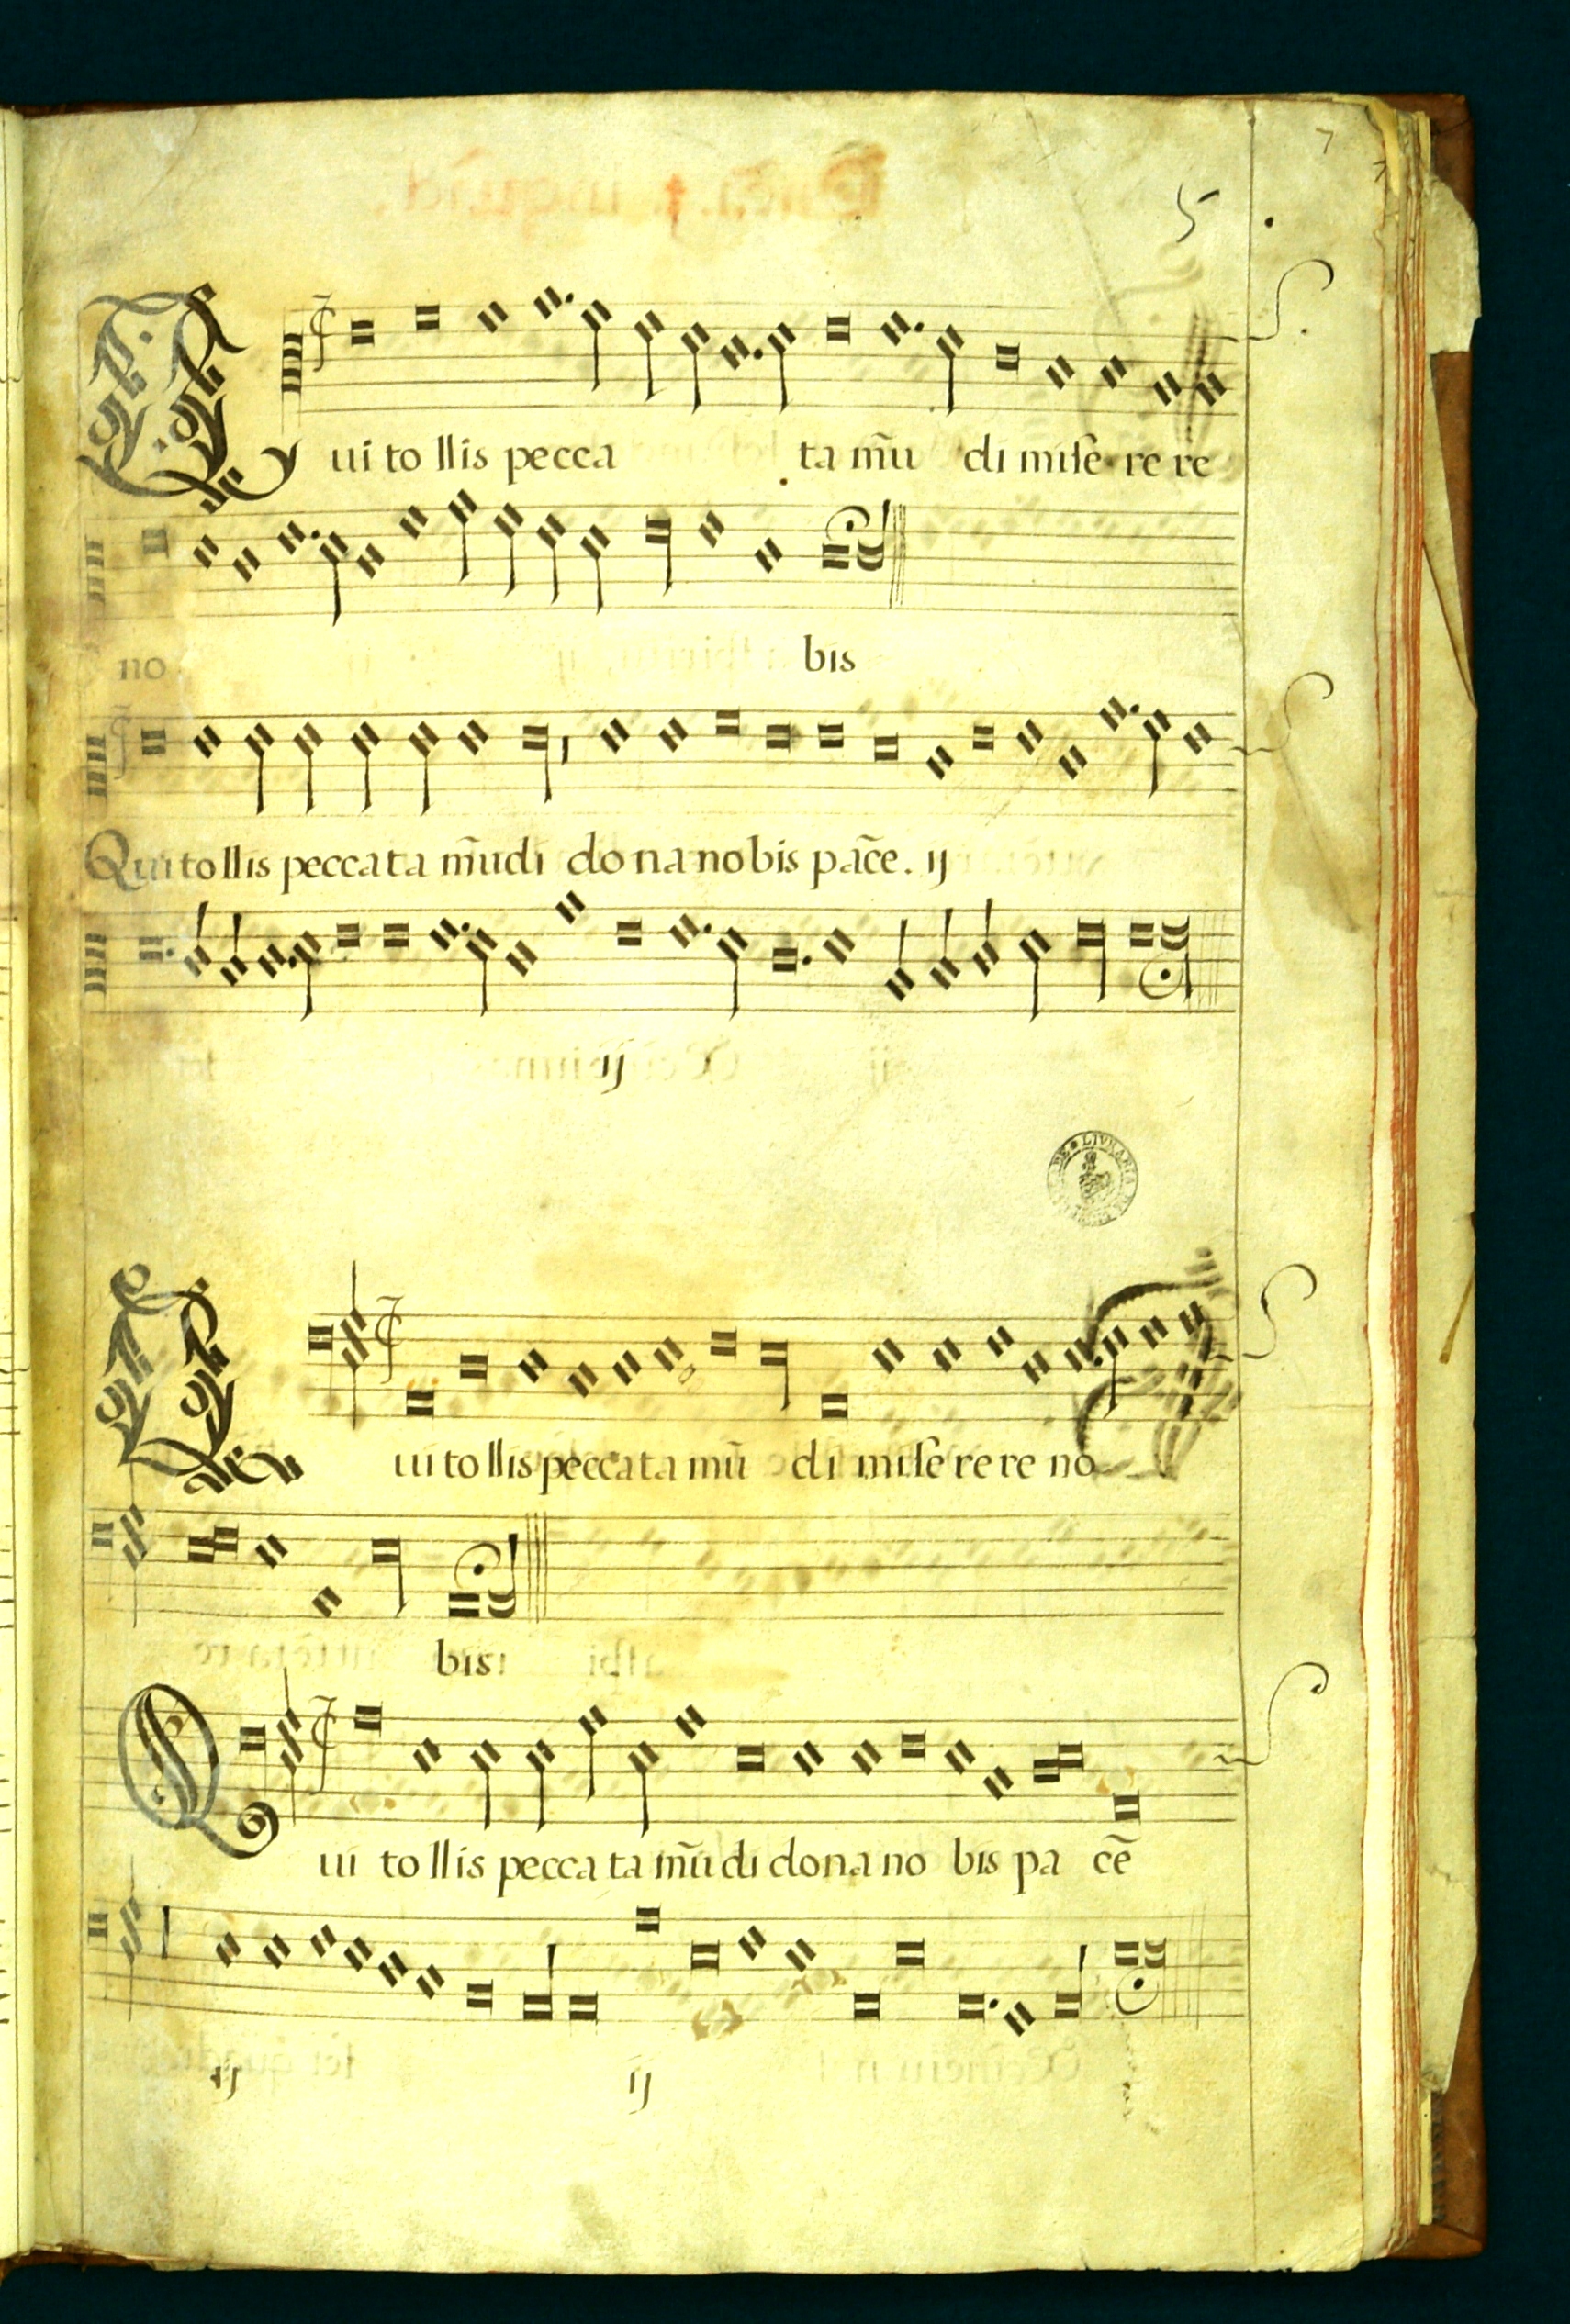 7
5
Qui tollis pecca ta mũ di mise re re
no bis
Qui tollis peccata mũdi dona nobis pacẽ. ij
ij
LIVRARIA
Qui tollis peccata mũ di mise re re no
bis
Qui tollis pecca ta mũdi dona no bis pa cẽ
ij ij